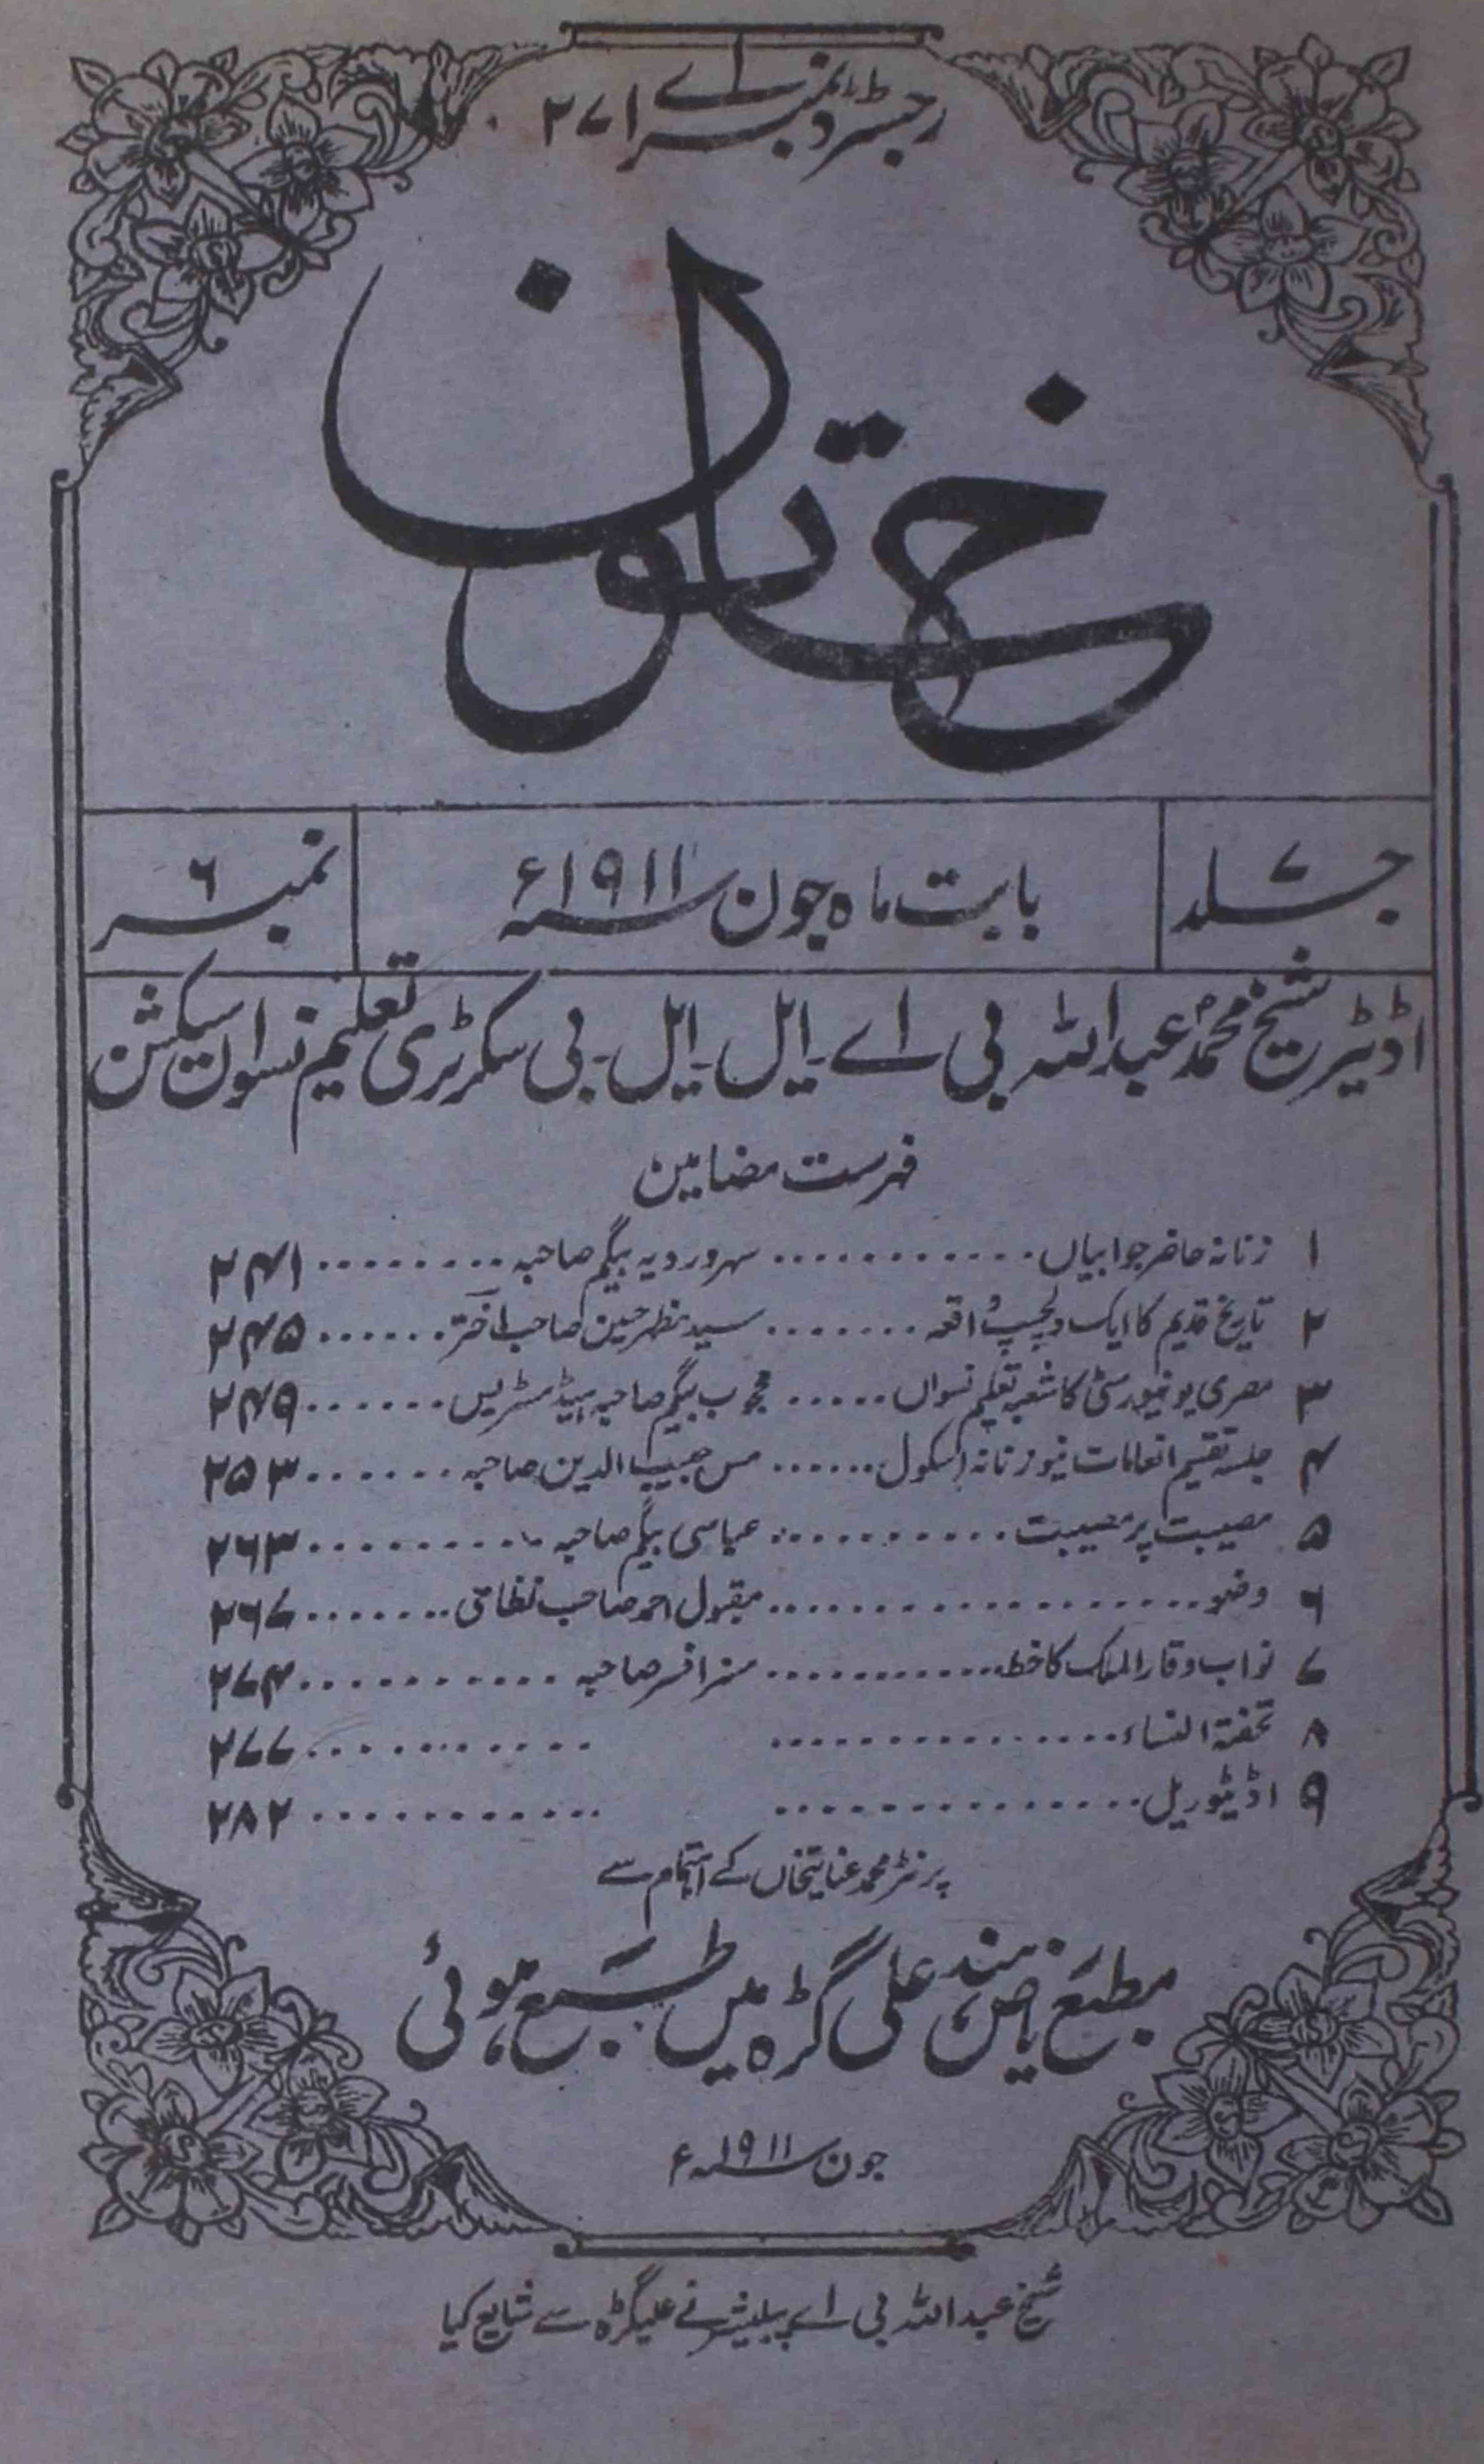 رجسٹرڈ نمبر اے ۲۷۱
خاتون
جلد ۷
بابت ماہ جون سنہ ۱۹۱۱ء
نمبر ۶
اڈیٹر شیخ محمد عبداللہ بی اے۔ ایل۔ ایل۔ بی سکرٹری تعلیم نسواں سیکشن
فہرست مضامین
۱ زنانہ حاضر جوابیاں ............ سہروردیہ بیگم صاحبہ ......... ۲۴۱
۲ تاریخ قدیم کا ایک دلچسپ واقعہ ........ سید منظر حسین صاحب اختر ...... ۲۴۵
۳ مصری یونیورسٹی کا شعبہ تعلیم نسواں ..... محبوب بیگم صاحبہ ہیڈ مسٹریس ...... ۲۴۹
۴ جلسہ تقسیم انعامات نیو زنانہ اسکول ...... مس حبیب الدین صاحبہ ....... ۲۵۳
۵ مصیبت پر مصیبت .......... عباسی بیگم صاحبہ .......... ۲۶۳
۶ وضو .................. مقبول احمد صاحب نظامی ....... ۲۶۷
۷ نواب وقار الملک کا خط ........... مسز افسر صاحبہ ........... ۲۷۴
۸ تحفۃ النساء ................ ........... ۲۷۷
۹ اڈیٹوریل ............... ............ ۲۸۲
پرنٹر محمد عنایتخاں کے اہتمام سے
مطبع فیاض ہند علی گڑہ میں طبع ہوئی
جون سنہ ۱۹۱۱ء
شیخ عبداللہ بی اے پبلیشر نے علیگڑہ سے شایع کیا